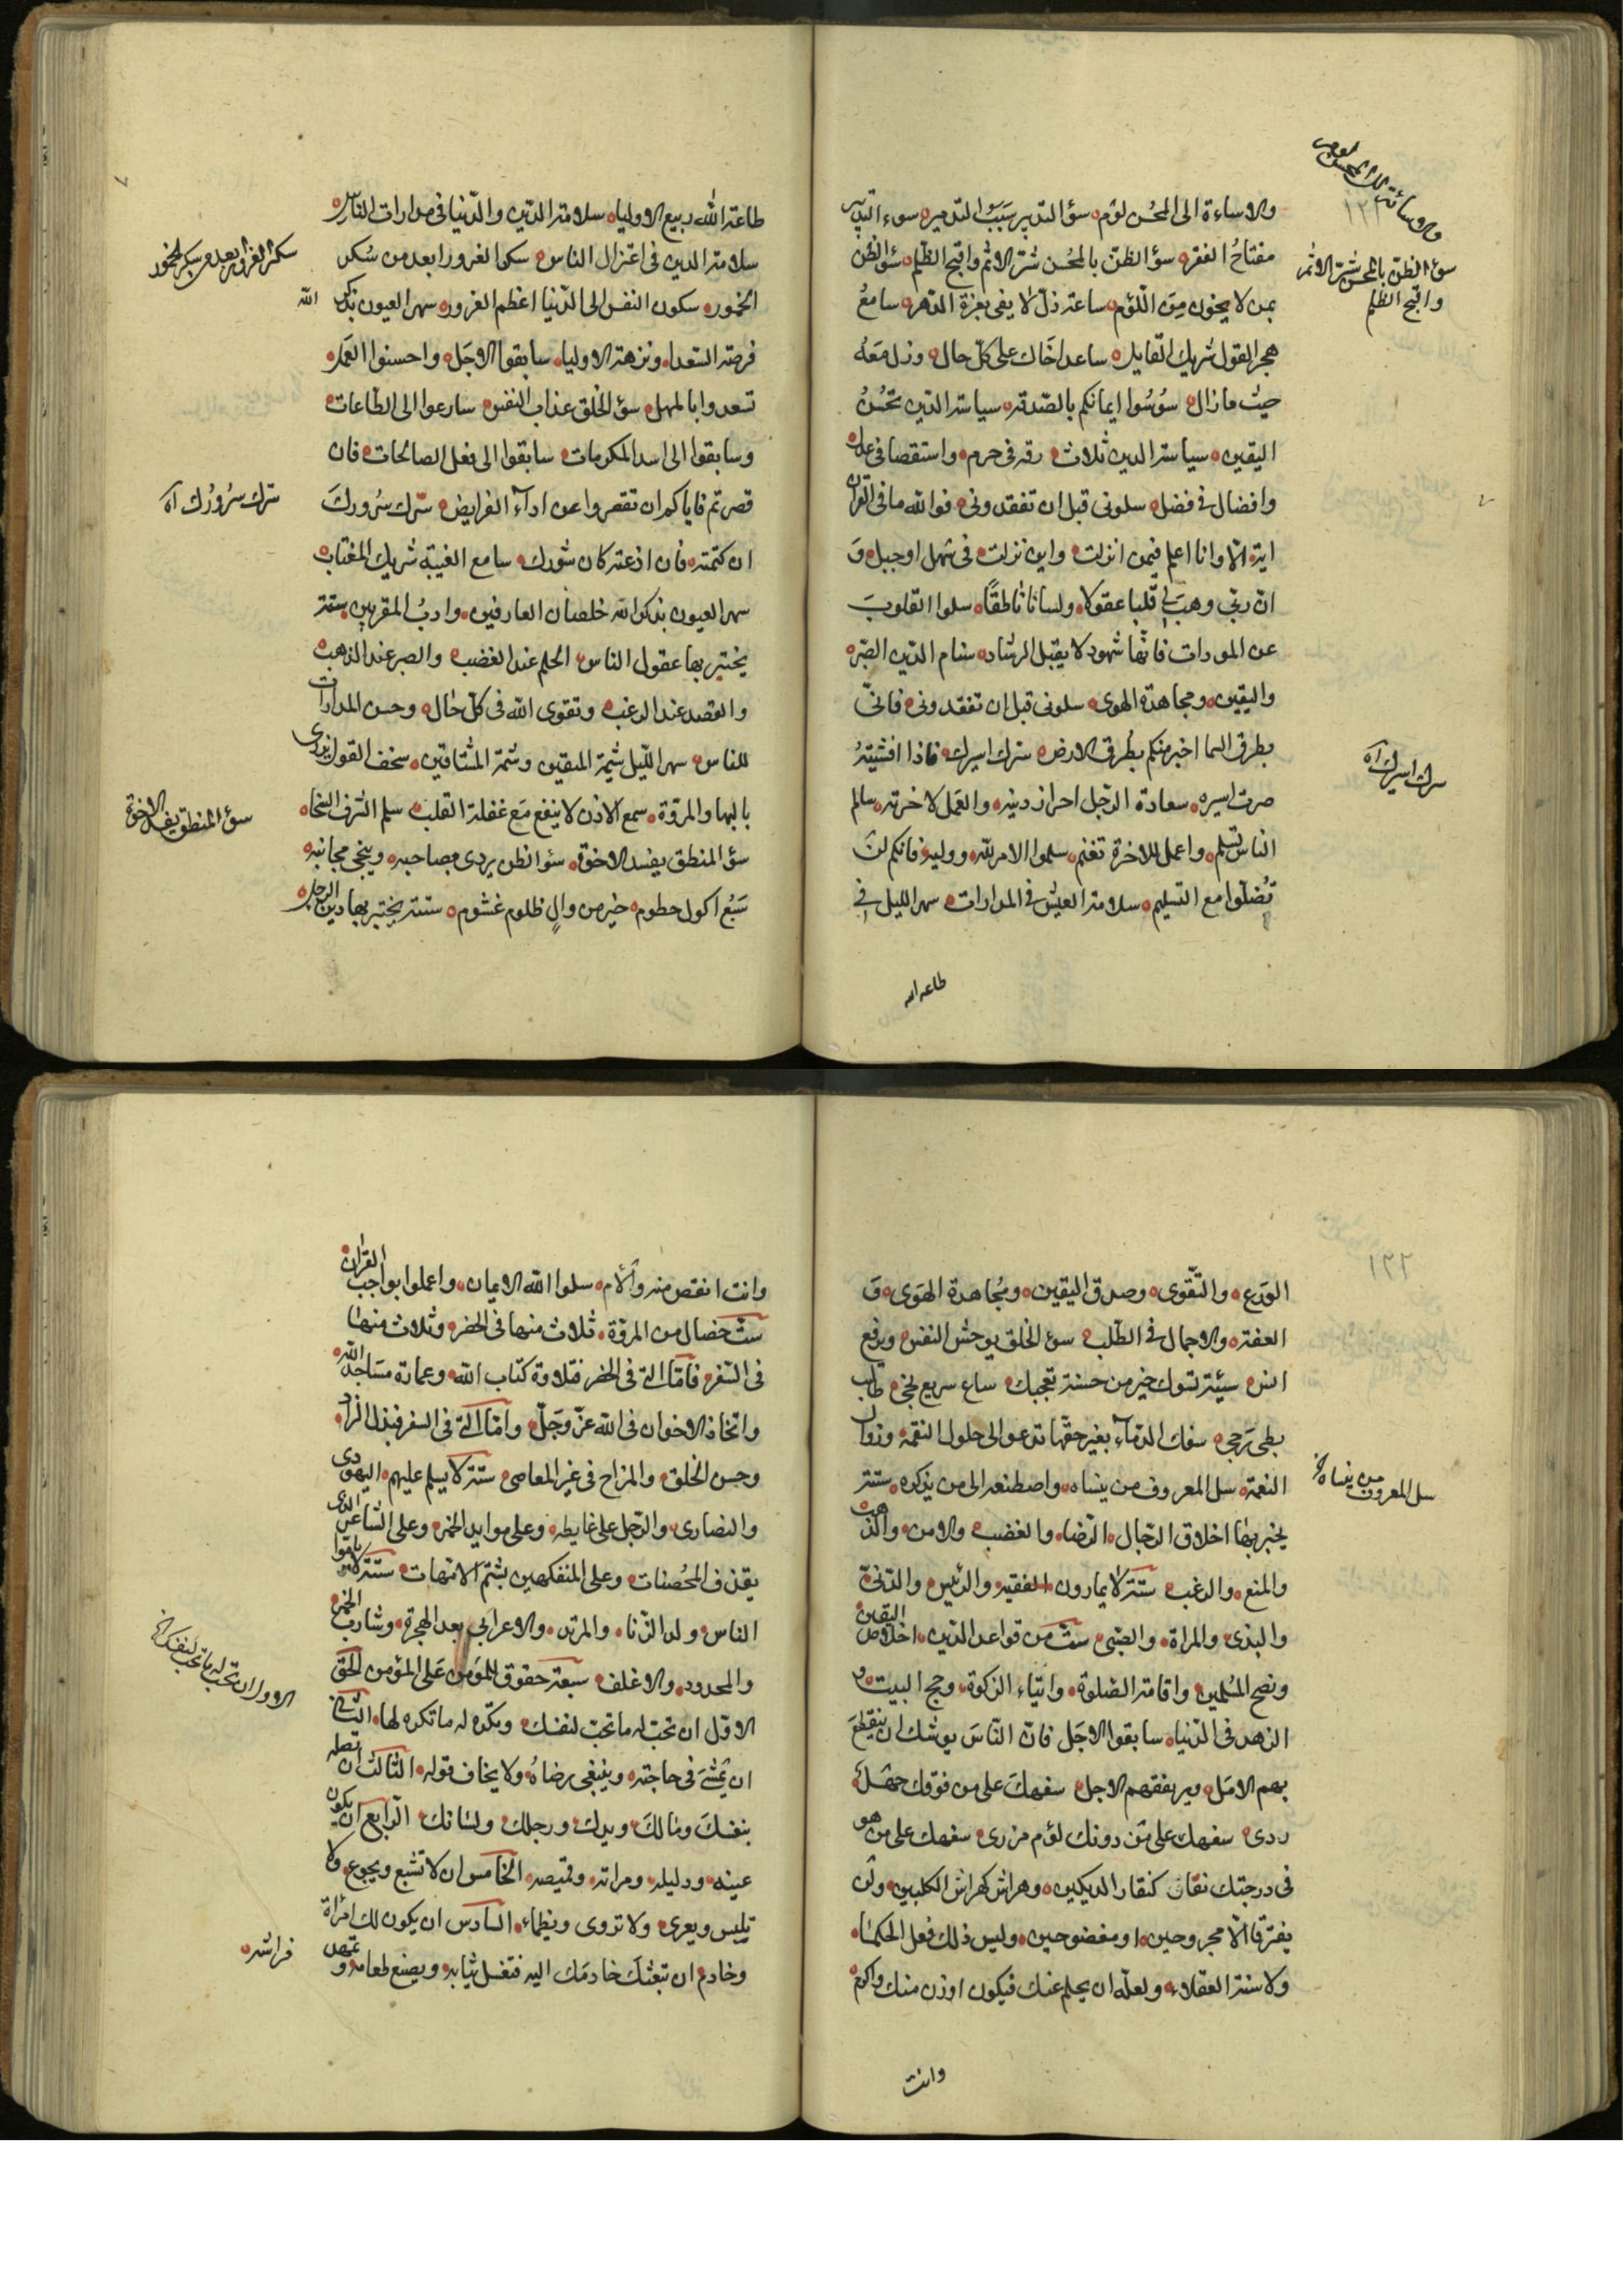 والاساءة الى المحسن لؤم سؤ التدبير سبب التدمير سوء التدبير
مفتاح الفقر سؤ الظن بالمحسن شر الاثم واقبح الظلم سؤ الظن
بمن لا يخون من اللؤم ساعة ذل لا يفى بعزة الدهر سامع
هجر القول شريك القايل ساعد اخاك على كل حال وزل معه
حيث ما زال سوسوا ايمانكم بالصدقة سياسة الدين تحسن
اليقين سياسة الدين ثلاث رقة فى حزم واستقصا فى عدل
وافضال فى فضل سلونى قبل ان تفقدونى فوالله ما فى القران
اية الا وانا اعلم فيمن انزلت واين نزلت فى سهل او جبل و
ان ربى وهب لى قلبا عقولا ولسانا ناطقا سلوا القلوب
عن المودات فانها شهود لا يقبل الرشاد سنام الدين الصبر
واليقين ومجاهدة الهوى سلونى قبل ان تفقدونى فانى
بطرق السما اخبر منكم بطرق الارض سرك اسيرك فاذا افشيته
صرت اسيره سعادة الرجل احراز دينه والعمل لاخرته سالم
الناس تسلم واعمل للاخرة تغنم سلموا الامر لله ووليه فانكم لن
تضلوا مع التسليم سلامة العيش فى المدارات سهر الليل فى
طاعة الله
١٢١
سؤ الظن بالمحسن شر الاثم
واقبح الظلم
سرك اسيرك اه
طاعة الله ربيع الاولياء سلامة الدين والدنيا فى مدارات الناس
سلامة الدين فى اعتزال الناس سكر الغرور ابعد من سكر
الخمور سكون النفس الى الدنيا اعظم الغرور سهر العيون بذكر
الله
فرصة السعدا ونزهة الاوليا سابقوا الاجل واحسنوا العمل
تسعدوا بالمهل سؤ الخلق عذاب النفس سارعوا الى الطاعات
وسابقوا الى اسد المكرمات سابقوا الى فعل الصالحات فان
قصرتم فاياكم ان تقصروا عن اداء الفرايض سرك سرورك
ان كتمته فان اذعته كان شورك سامع الغيبة شريك المغتاب
سهر العيون بذكر الله خلصان العارفين وادب المقربين ستة
يختبر بها عقول الناس الحلم عند الغضب والصبر عند الرهب
والقصد عند الرغب وتقوى الله فى كل حال وحسن المدارات
للناس سهر الليل شيمة المتقين وشيمة المشتاقين سخف القول يزرى
بالبها والمروة سمع الاذن لا ينفع مع غفلة القلب سلم الشرف السخا
سؤ المنطق يفسد الاخوة سؤ الظن يردى مصاحبه وينجى مجانبه
سبع اكول حطوم خير من وال ظلوم غشوم ستة يختبر بها دين الرجل
سكر الغرور ابعد من سكر الخمور
سرك سرورك اه
سؤ المنطق يفسد الاخوة
١٢٢
الورع والتقوى وصدق اليقين ومجاهدة الهوى و
العفة والاجمال فى الطلب سوء الخلق يوحش النفس ويرفع
انس سيئة تسوك خير من حسنة تعجبك ساع سريع نجى طالب
بطى رجى سفك الدماء بغير حقها تدعو الى حلول النقمة وزوال
النعمة سل المعروف من ينساه واصطنعه الى من يذكره ستة
يختبر بها اخلاق الرجال الرضا والغضب والامن والرهب
والمنع والرغب ستة لا يمارون الفقيه والرئيس والدنى
والبذى والمراة والصبى ست من قواعد الدين اخلاص اليقين
ونصح المسلمين واقامة الصلوة وايتاء الزكوة وحج البيت و
الزهد فى الدنيا سابقوا الاجل فان الناس يوشك ان ينقطع
بهم الامل ويرهقهم الاجل سفهك على من فوقك جهل
ردى سفهك على من دونك لؤم مزرى سفهك على من هو
فى درجتك نقار كنقار الديكين وهراش كهراش الكلبين ولن
يفترقا الا مجروحين او مفضوحين وليس ذلك فعل الحكما
ولا سنة العقلاء ولعله ان يحلم عنك فيكون اوزن منك واكرم
وانت
سل المعروف من ينساه
وانت انقص منه والام سلوا الله الايمان واعملوا بواجب القران
ست خصال من المروة ثلاث منها فى الحضر وثلاث منها
فى السفر فاما التى فى الحضر فتلاوة كتاب الله وعمارة مساجد الله
واتخاذ الاخوان فى الله عز وجل واما التى فى السفر فبذل الزاد
وحسن الخلق والمزاح فى غير المعاصى ستة لا يسلم عليهم اليهودى
والنصارى والرجل على غايطه وعلى موايد الخمر وعلى الشاعر الذى
يقذف المحصنات وعلى المتفكهين بشتم الامهات ستة لا يؤموا
الناس ولد الزنا والمرتد والاعرابى بعد الهجرة وشارب الخمر
والمحدود والاغلف سبعة حقوق للمؤمن على المؤمن الحق
الاول ان تحب له ما تحب لنفسك وتكره له ما تكره لها الثانى
ان تمشى فى حاجته وينبغى رضاه ولا يخاف قوله الثالث ان تصله
بنفسك ومالك ويدك ورجلك ولسانك الرابع ان يكون
عينه ودليله ومراته وقميصه الخامس ان لا تشبع ويجوع ولا
تلبس ويعرى ولا تروى ويظماء السادس ان يكون لك امراة
وخادم ان تبعثك خادمك اليه فتغسل ثيابه ويصنع طعامه و تمهد
فراشه
الاول ان تحب له ما تحب لنفسك